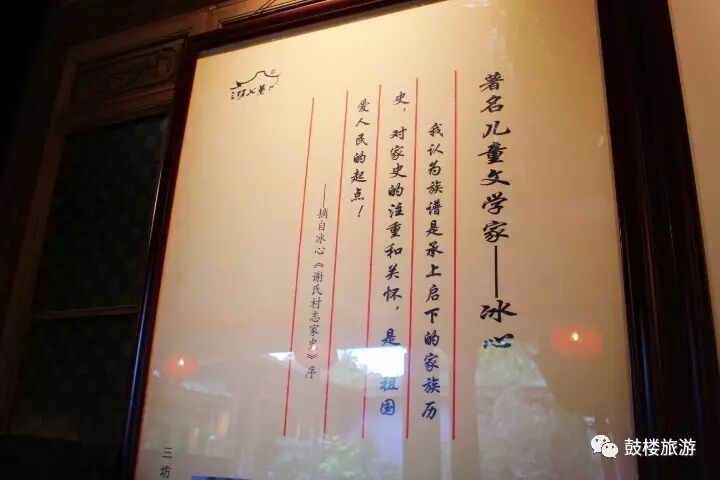 著名儿童文学家——冰心
我认为族谱是承上启下的家族历
史，对家史的注重和关怀，是祖国
爱人民的起点！
——摘自冰心《谢氏村志家史》序
三坊
鼓楼旅游